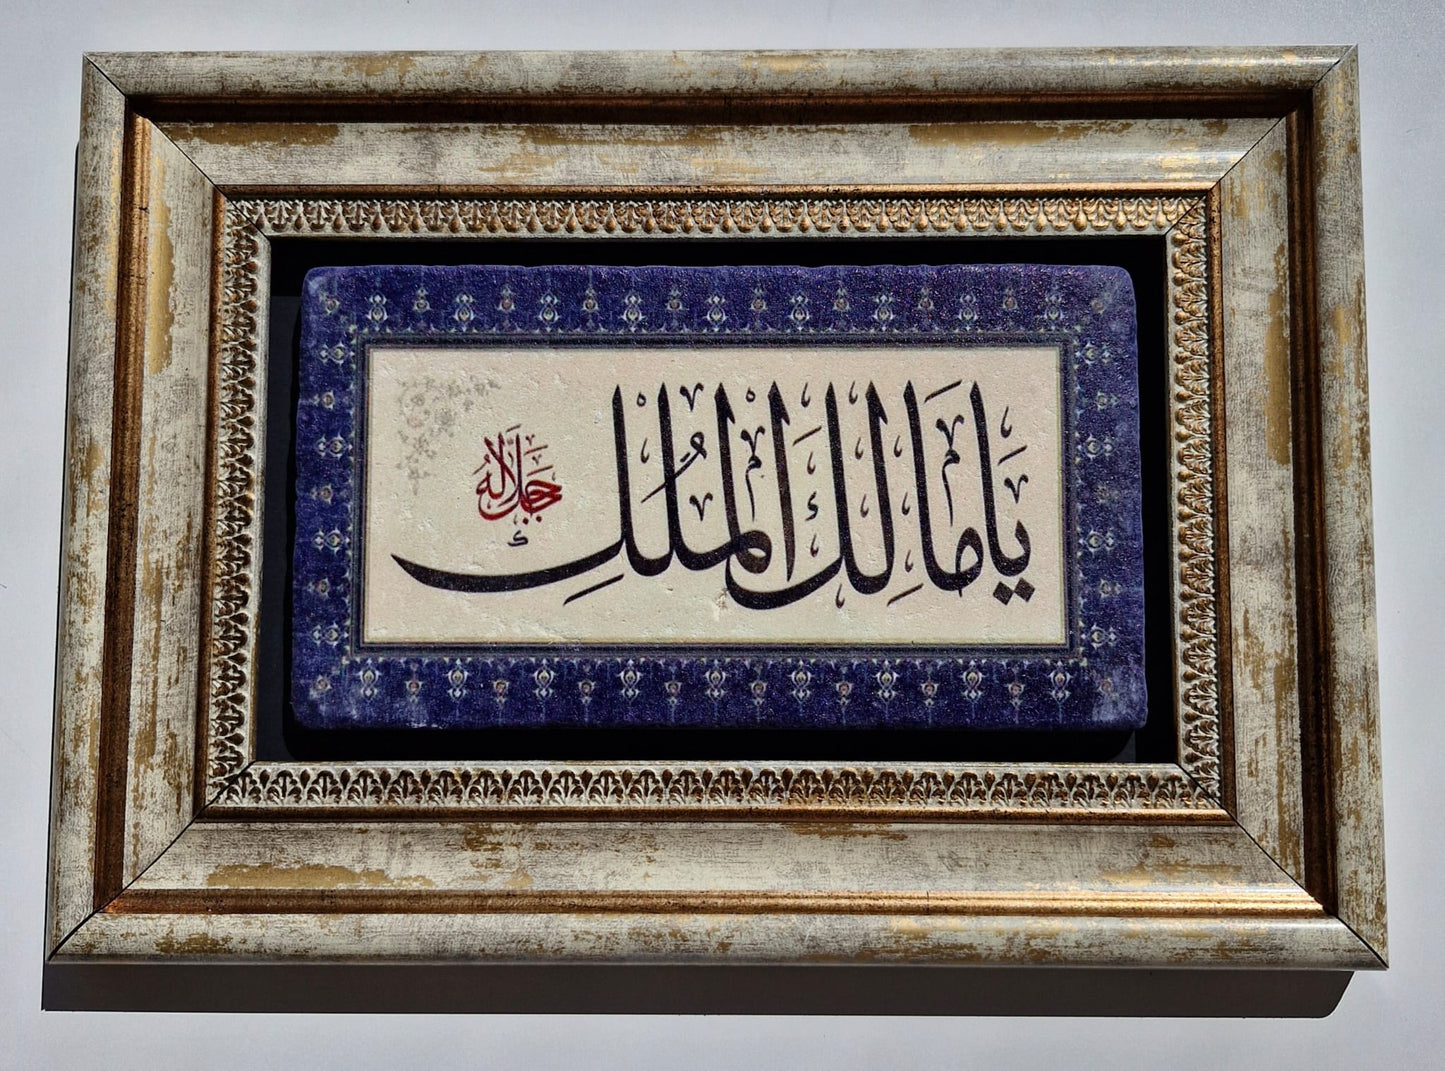 يَا مَالِكَ الْمُلْكِ
جَلَّ جَلَالُهُ